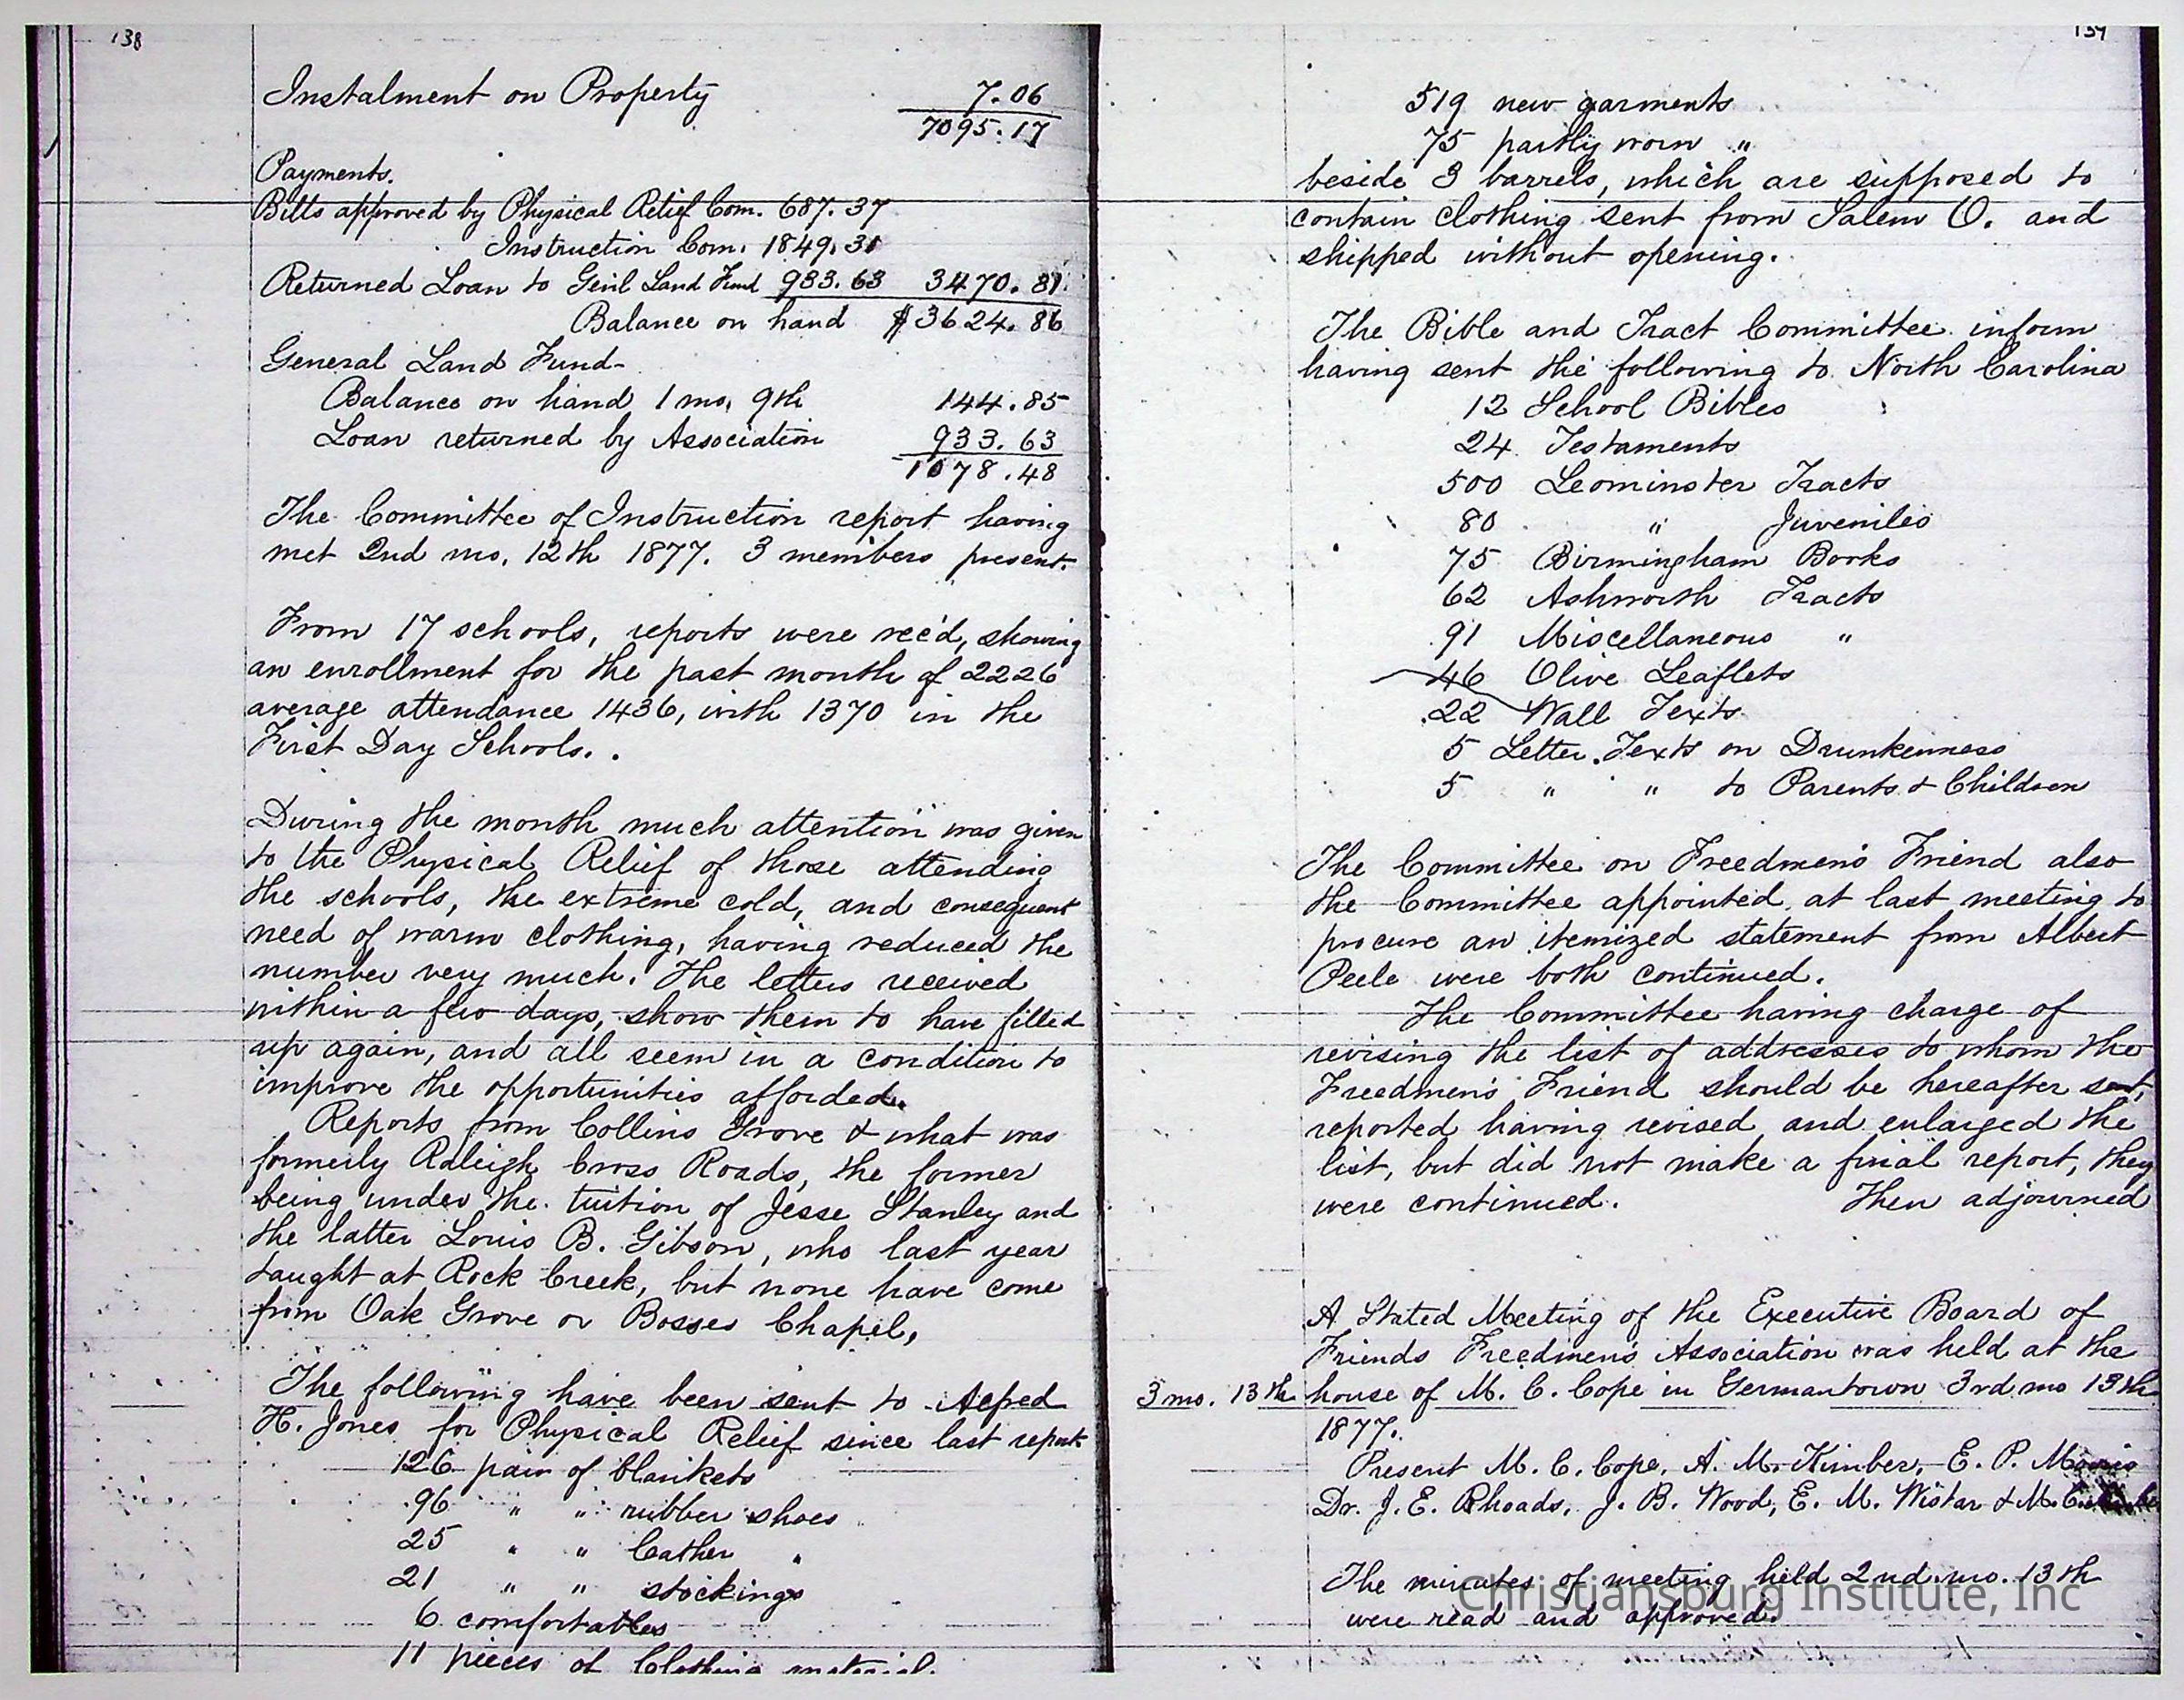 138
Instalment on Property 7.06
7095.17
Payments.
Bills approved by Physical Relief Com. 687.37
Instruction Com. 1849.31
Returned Loan to Genl Land Fund 933.63 3470.31
Balance on hand $3624.86
General Land Fund-
Balance on hand 1 mo, 9th 144.85
Loan returned by Association 933.63
1078.48
The Committee of Instruction report having
met 2nd mo. 12th 1877. 3 members present.
From 17 schools, reports were rec'd, showing
an enrollment for the past month of 2226
average attendance 1436, with 1370 in the
First Day Schools.
During the month much attention was given
to the Physical Relief of those attending
the schools, the extreme cold, and consequent
need of warm clothing, having reduced the
number very much. The letters received
within a few days, show them to have filled
up again, and all seem in a condition to
improve the opportunities afforded.
Reports from Collins Grove & what was
formerly Raleigh Cross Roads, the former
being under the tuition of Jesse Stanley and
the latter Louis B. Gibson, who last year
taught at Rock Creek, but none have come
from Oak Grove or Bosses Chapel,
The following have been sent to Alfred
H. Jones for Physical Relief since last report
126 pair of blankets
96 " " rubber shoes
25 " " leather "
21 " " stockings
6 comfortables
11 pieces of Clothing material.
139
519 new garments
75 partly worn "
beside 3 barrels, which are supposed to
contain clothing sent from Salem O. and
shipped without opening.
The Bible and Tract Committee inform
having sent the following to North Carolina
12 School Bibles
24 Testaments
500 Leominster Tracts
80 " Juveniles
75 Birmingham Books
62 Ashworth Tracts
91 Miscellaneous "
46 Olive Leaflets
22 Wall Texts
5 Letter Texts on Drunkenness
5 " " to Parents & Children
The Committee on Freedmen's Friend also
the Committee appointed at last meeting to
procure an itemized statement from Albert
Peele were both continued.
The Committee having charge of
revising the list of addresses to whom the
Freedmen's Friend should be hereafter sent,
reported having revised and enlarged the
list, but did not make a final report, they
were continued. Then adjourned
A Stated Meeting of the Executive Board of
Friends Freedmen's Association was held at the
3 mo. 13th house of M. C. Cope in Germantown 3rd mo 13th
1877.
Present M. C. Cope, A. M. Kimber, E. P. Morris
Dr. J. E. Rhoads, J. B. Wood, E. M. Wistar & M.
The minutes of meeting held 2nd mo. 13th
were read and approved.
Christiansburg Institute, Inc